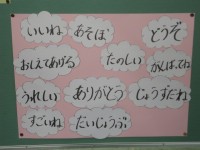 いいね あそぼ どうぞ
おしえてあげる たのしい がんばってね
うれしい ありがとう じょうずだね
すごいね だいじょうぶ